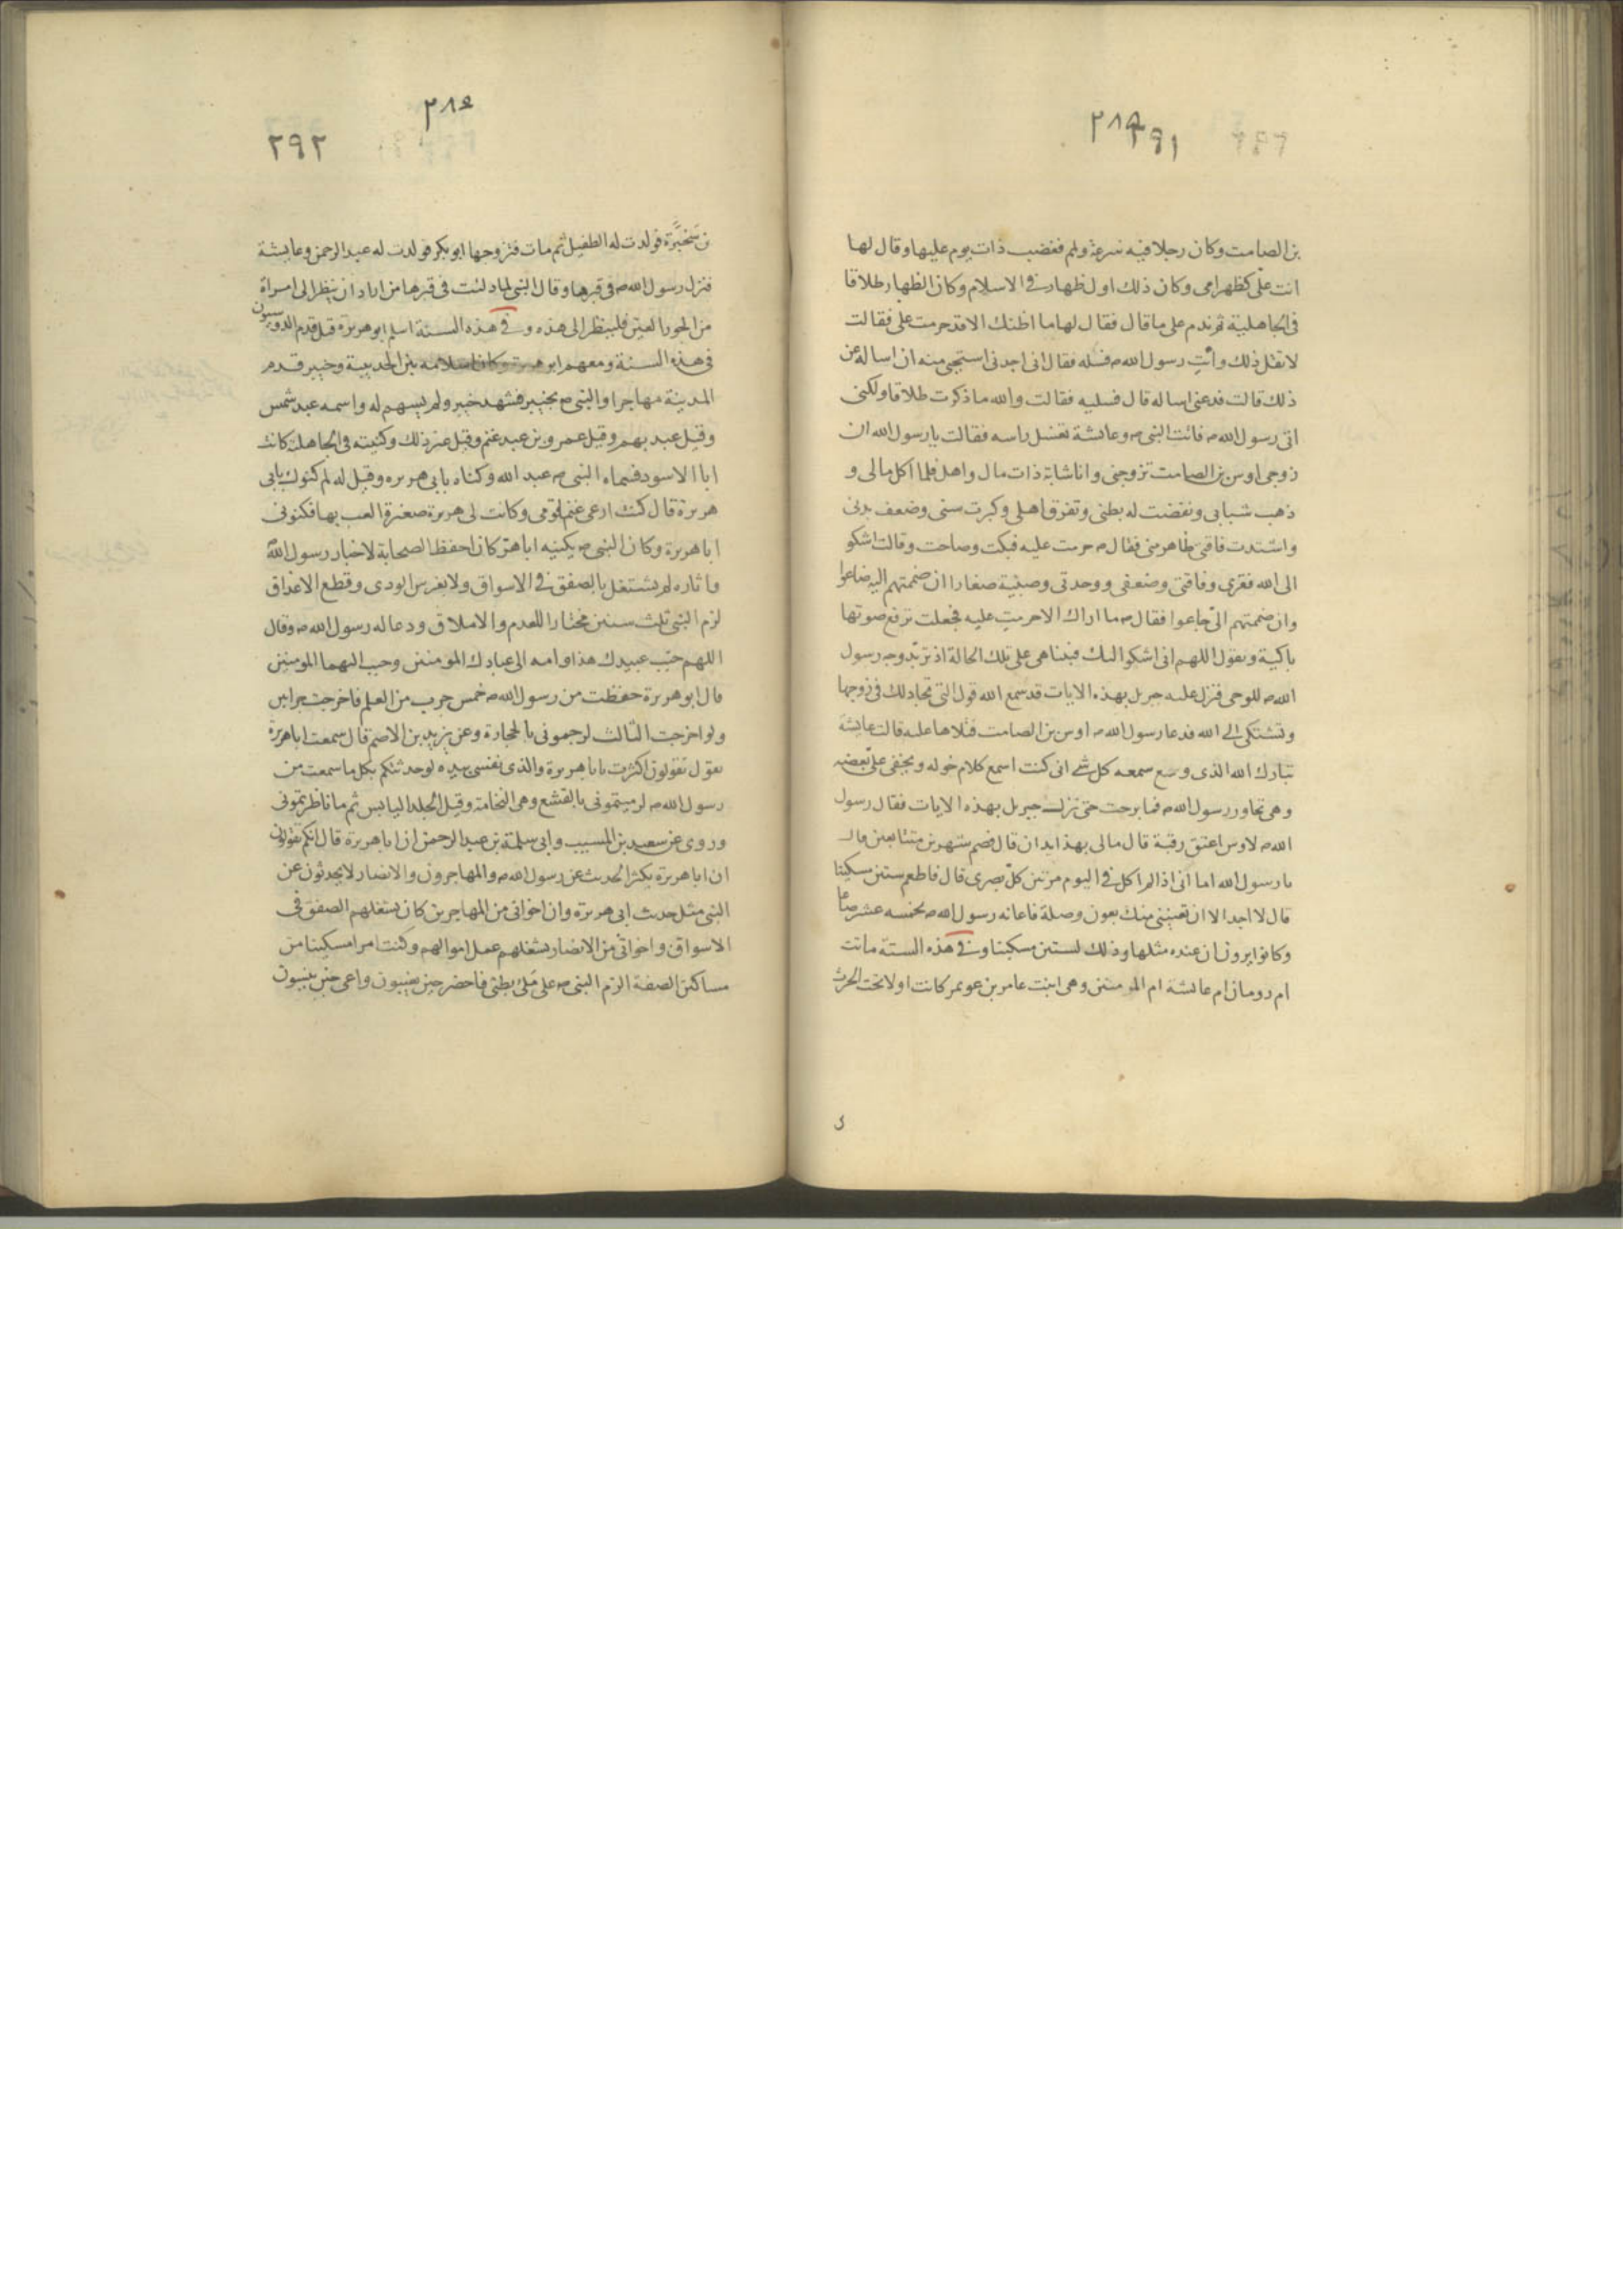 ٢٨٥
٢٩١
بن الصامت وكان رجلا فيه سرعة ولمم فغضب ذات يوم عليها وقال لها
انت علىّ كظهر امى وكان ذلك اول ظهار فى الاسلام وكان الظهار طلاقا
فى الجاهلية ثم ندم على ما قال فقال لها ما اظنك الا قد حرمت على فقالت
لا تقل ذلك وأت رسول الله م فسله فقال انى اجدنى استحيى منه ان اساله عن
ذلك قالت فدعنى اساله قال فسليه فقالت والله ما ذكرت طلاقا ولكنى
اتى رسول الله م فاتت النبى م وعائشة تغسل راسه فقالت يا رسول الله ان
زوجى اوس بن الصامت تزوجنى وانا شابة ذات مال واهل فلما اكل مالى و
ذهب شبابى ونفضت له بطنى وتفرق اهلى وكبرت سنى وضعف بدنى
واشتدت فاقتى ظاهر منى فقال م حرمت عليه فبكت وصاحت وقالت اشكو
الى الله فقرى وفاقتى وضعفى ووحدتى وصبية صغارا ان ضممتهم اليه ضاعوا
وان ضممتهم الىّ جاعوا فقال م ما اراك الا حرمت عليه فجعلت ترفع صوتها
باكية وتقول اللهم انى اشكو اليك فبينا هى على تلك الحالة اذ تربّد وجه رسول
الله م للوحى فنزل عليه جبريل بهذه الايات قد سمع الله قول التى تجادلك فى زوجها
وتشتكى الى الله فدعا رسول الله م اوس بن الصامت فتلاها عليه قالت عايشة
تبارك الله الذى وسع سمعه كل شئ انى كنت اسمع كلام خوله ويخفى علىّ بعضه
وهى تحاور رسول الله م فما برحت حتى نزل جبريل بهذه الايات فقال رسول
الله م لاوس اعتق رقبة قال مالى بهذا يدان قال فصم شهرين متتابعين قال
يا رسول الله اما انى اذا لم اكل فى اليوم مرتين كلّ بصرى قال فاطعم ستين مسكينا
قال لا اجد الا ان تعيننى منك بعون وصلة فاعانه رسول الله م بخمسه عشر صاعا
وكانوا يرون ان عنده مثلها وذلك لستين مسكينا وفى هذه السنة ماتت
ام رومان ام عائشة ام المومنين وهى ابنت عامر بن عويمر كانت اولا تحت الحرث
٢٨٤
٢٩٢
بن سخبرة فولدت له الطفيل ثم مات فتزوجها ابو بكر فولدت له عبد الرحمن وعايشة
فنزل رسول الله م فى قبرها وقال النبى لما دليت فى قبرها من اراد ان ينظر الى امراة
من الحور العين فلينظر الى هذه وفى هذه السنة اسلم ابو هريرة قيل قدم الدوسيون
فى هذه السنة ومعهم ابو هريرة وكان اسلامه بين الحديبية وخيبر قدم
المدينة مهاجرا والنبى م بخيبر فشهد خيبر ولم يسهم له واسمه عبد شمس
وقيل عبد نهم وقيل عمرو بن عبد غنم وقيل غير ذلك وكنيته فى الجاهلية كانت
ابا الاسود فسماه النبى م عبد الله وكناه بابى هريره وقيل له لم كنوك بابى
هريرة قال كنت ارعى غنم قومى وكانت لى هريرة صغيرة العب بها فكنونى
ابا هريرة وكان النبى م يكنيه ابا هرّ كان احفظ الصحابة لاخبار رسول الله
واثاره لم يشتغل بالصفق فى الاسواق ولا بغرس الودى وقطع الاعذاق
لزم النبى ثلث سنين مختارا للعدم والاملاق ودعا له رسول الله م وقال
اللهم حبّب عبيدك هذا وامه الى عبادك المومنين وحبب اليهما المومنين
قال ابو هريرة حفظت من رسول الله م خمس جرب من العلم فاخرجت جرابين
ولو اخرجت الثالث لرجمونى بالحجارة وعن يزيد بن الاصم قال سمعت ابا هريرة
يقول تقولون اكثرت يابا هريرة والذى نفسى بيده لو حدثتكم بكل ما سمعت من
رسول الله م لرميتمونى بالقشع وهى النخامة وقيل الجلد اليابس ثم ما ناظرتمونى
وروى عن سعيد بن المسيب وابى سلمة بن عبد الرحمن ان ابا هريرة قال انكم تقولون
ان ابا هريرة يكثر الحديث عن رسول الله م والمهاجرون والانصار لا يحدثون عن
النبى مثل حديث ابى هريرة وان اخوانى من المهاجرين كان يشغلهم الصفق فى
الاسواق واخوانى من الانصار يشغلهم عمل اموالهم وكنت امرا مسكينا من
مساكين الصفة الزم النبى م على ملئ بطنى فاحضر حين يغيبون واعى حين ينسون